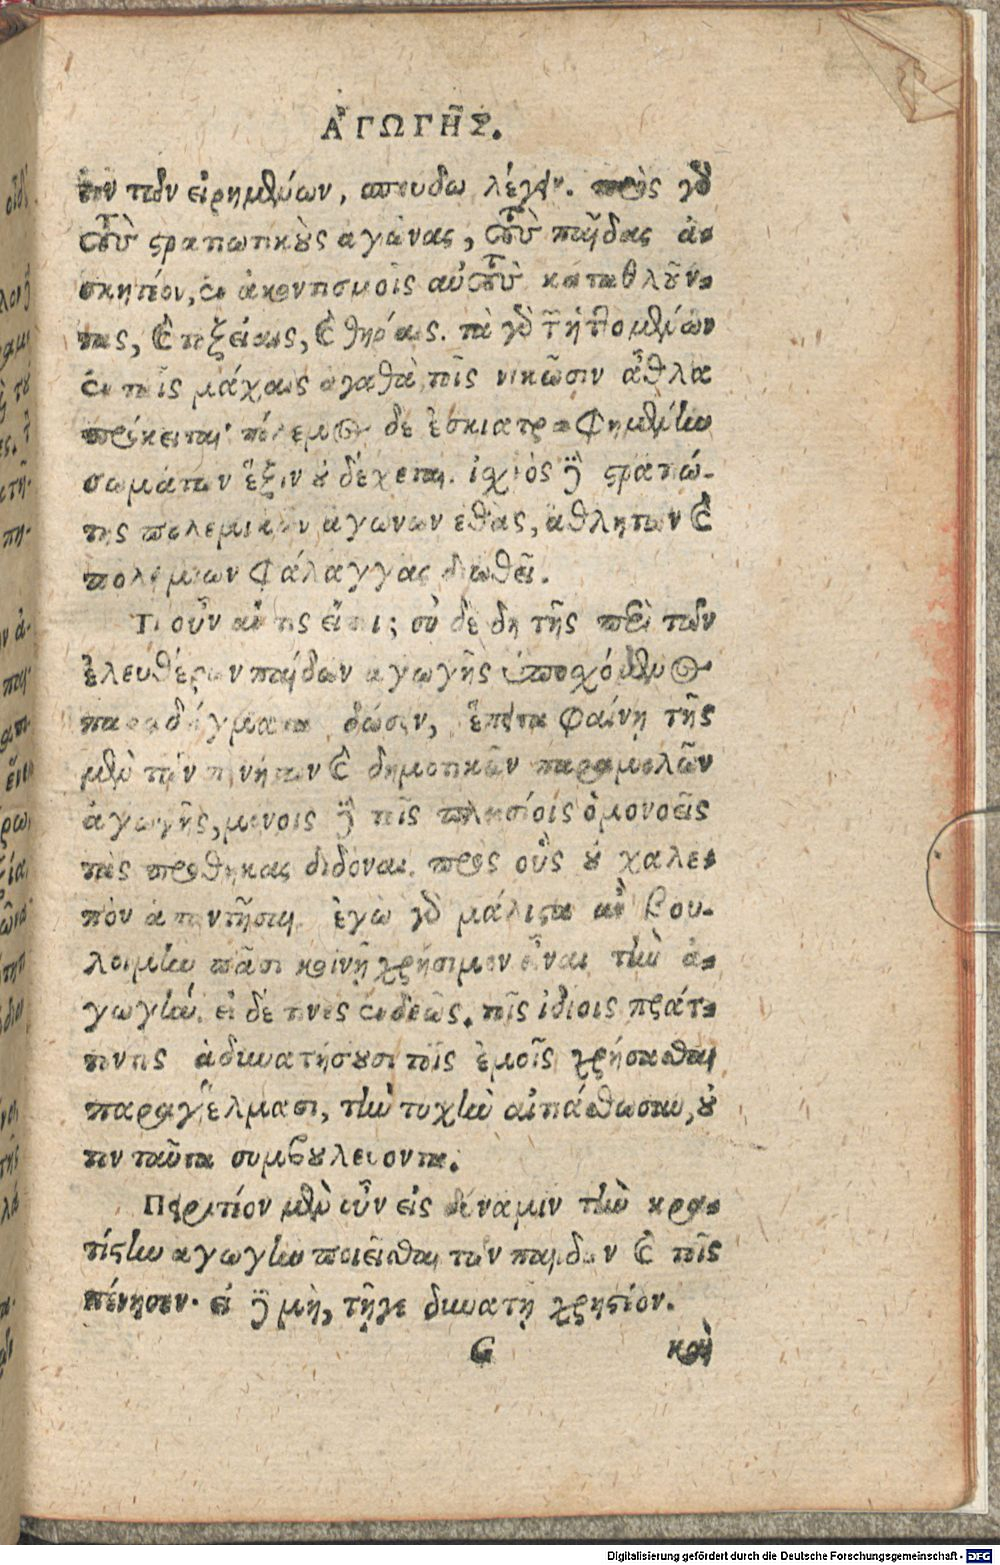 ἈΓΩΓΗ͂Σ.
τον τῶν εἰρημένων, σπεύδω λέγειν. πρὸς γὸ
τοὺς στρατιωτικοὺς ἀγῶνας, τοὺς παῖδας ἀ-
σκητέον, ἐν ἀκοντισμοῖς αὐτοὺς καταθλοῦν-
τας, καὶ τοξείαις, καὶ θήραις. τὰ γὰρ τῶν ἡττωμένων
ἐν ταῖς μάχαις ἀγαθὰ τοῖς νικῶσιν ἆθλα
πρόκειται· πόλεμος δὲ ἐσκιατροφημένην
σωμάτων ἕξιν οὐ δέχεται. ἰσχνὸς δὲ στρατιώ-
της πολεμικῶν ἀγώνων ἐθὰς, ἀθλητῶν καὶ
πολεμίων φάλαγγας διωθεῖ.
Τί οὖν ἄν τις εἴποι; σὺ δὲ δὴ τῆς περὶ τῶν
ἐλευθέρων παίδων ἀγωγῆς ὑποσχόμενος
παραδείγματα δώσειν, ἔπειτα φαίνῃ τῆς
μὲν τῶν πενήτων καὶ δημοτικῶν παραμελῶν
ἀγωγῆς, μόνοις δὲ τοῖς πλουσίοις ὁμονοεῖς
τὰς ὑποθήκας διδόναι. πρὸς οὓς οὐ χαλε-
πὸν ἀπαντῆσαι. ἐγὼ γὰρ μάλιστα ἂν βου-
λοίμην πᾶσι κοινῇ χρήσιμον εἶναι τὴν ἀ-
γωγήν. εἰ δέ τινες ἐνδεῶς τοῖς ἰδίοις πράτ-
τοντες ἀδυνατήσουσι τοῖς ἐμοῖς χρήσασθαι
παραγγέλμασι, τὴν τύχην αἰτιάσθωσαν, οὐ
τὸν ταῦτα συμβουλεύοντα.
Πειρατέον μὲν οὖν εἰς δύναμιν τὴν κρα-
τίστην ἀγωγὴν ποιεῖσθαι τῶν παίδων καὶ τοῖς
πένησιν· εἰ δὲ μὴ, τῇγε δυνατῇ χρηστέον.
G καὶ
Digitalisierung gefördert durch die Deutsche Forschungsgemeinschaft - DFG